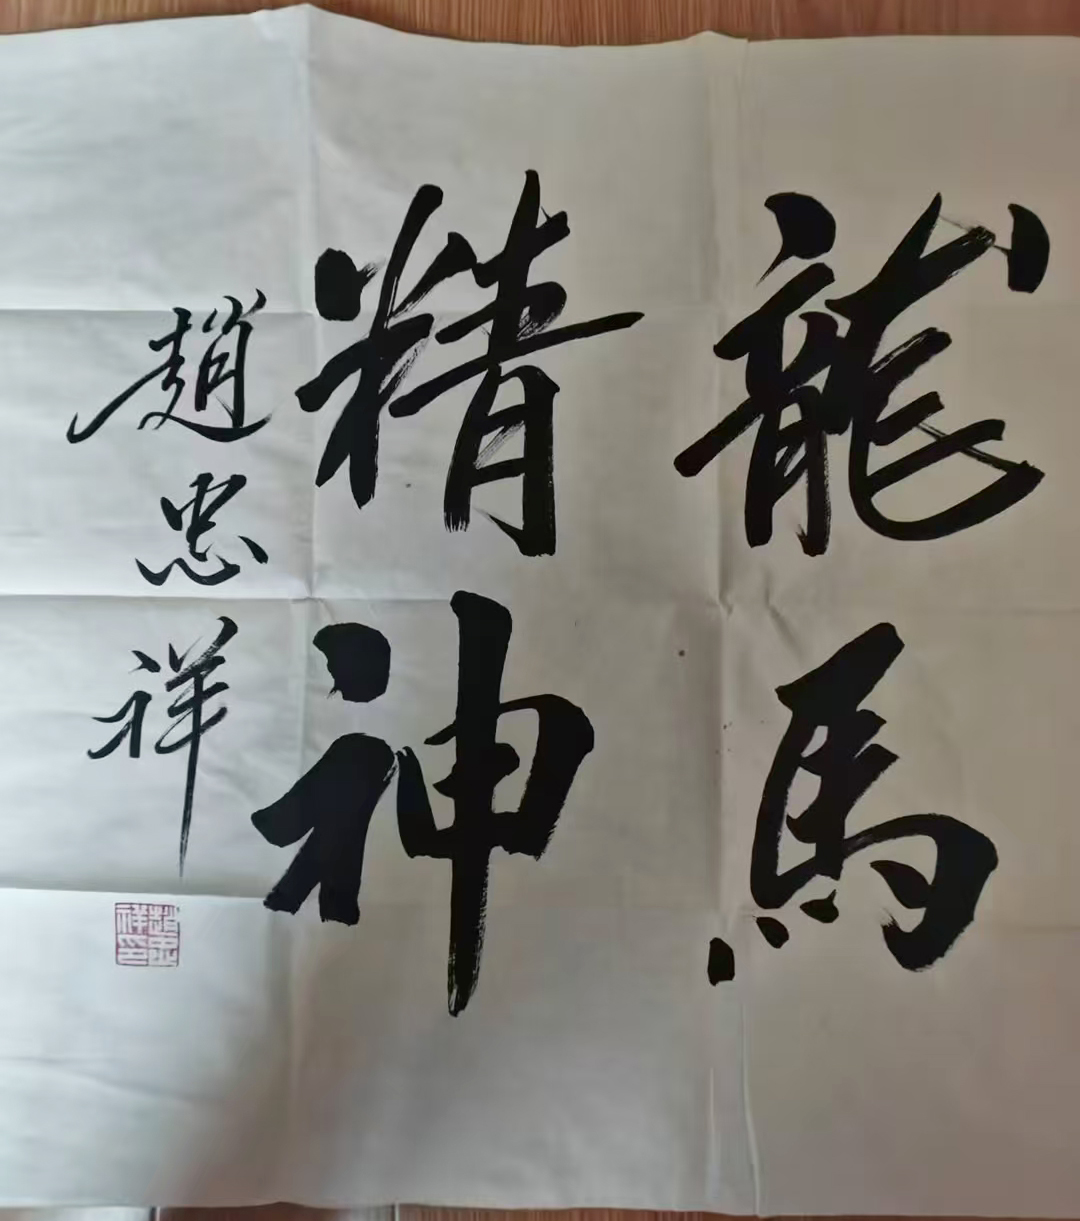 龍馬
精神
趙忠祥
趙忠
祥印